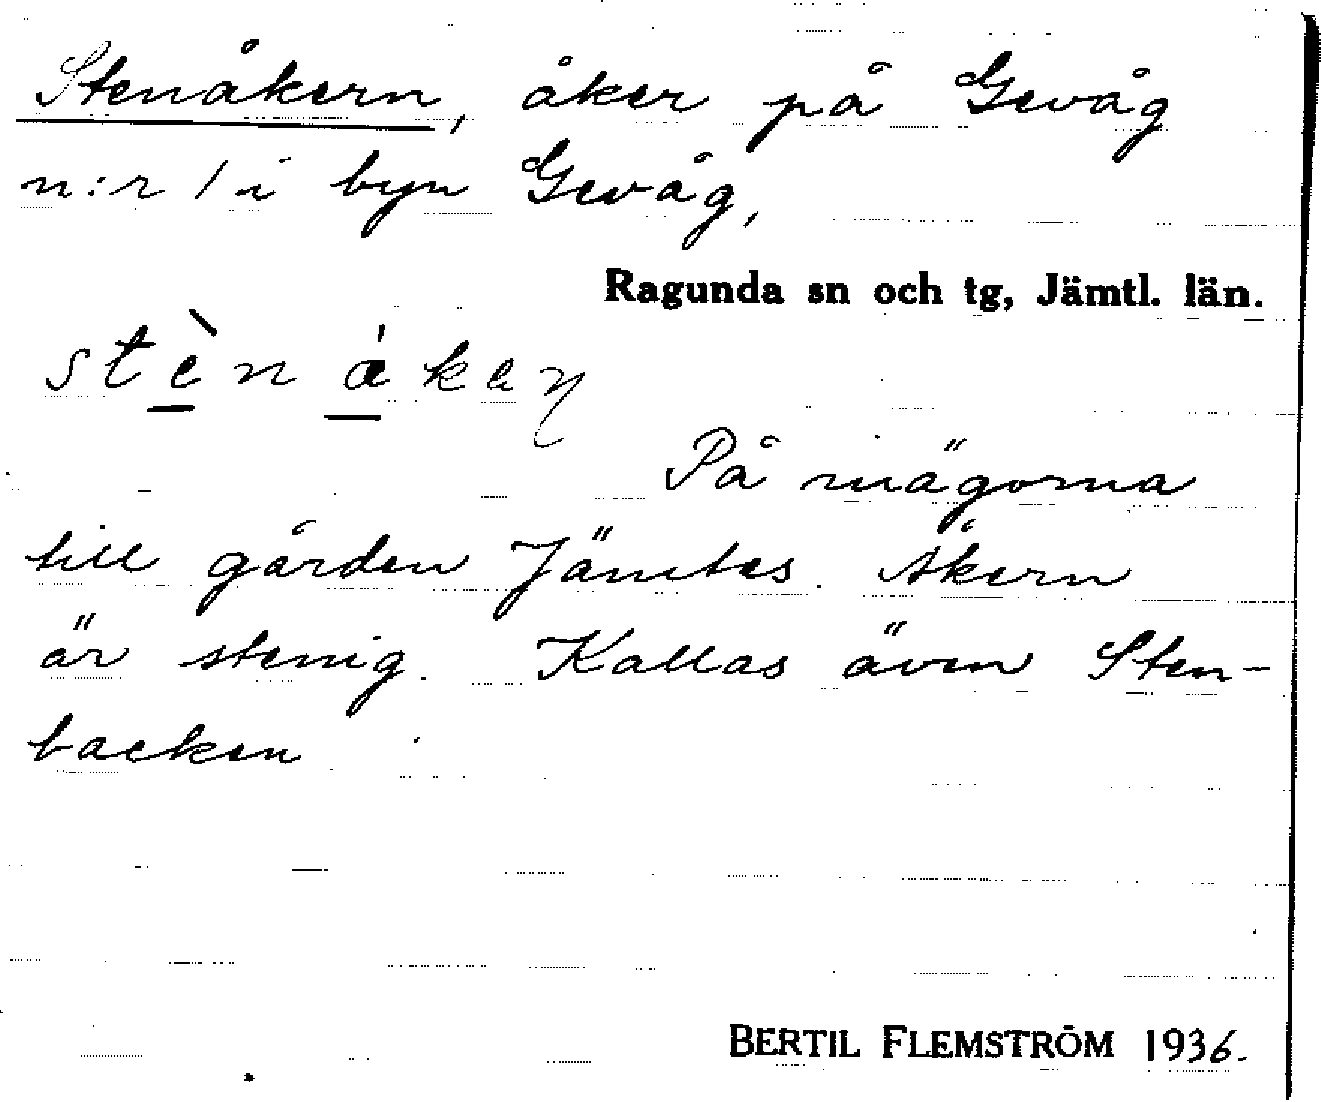 Stenåkern, åker på Gevåg
n:r 1 i byn Gevåg,
Ragunda sn och tg, Jämtl. län.
På mägorna
till gården Jämtes. Åkern
är stenig. Kallas även Sten-
backen
BERTIL FLEMSTRÖM 1936.